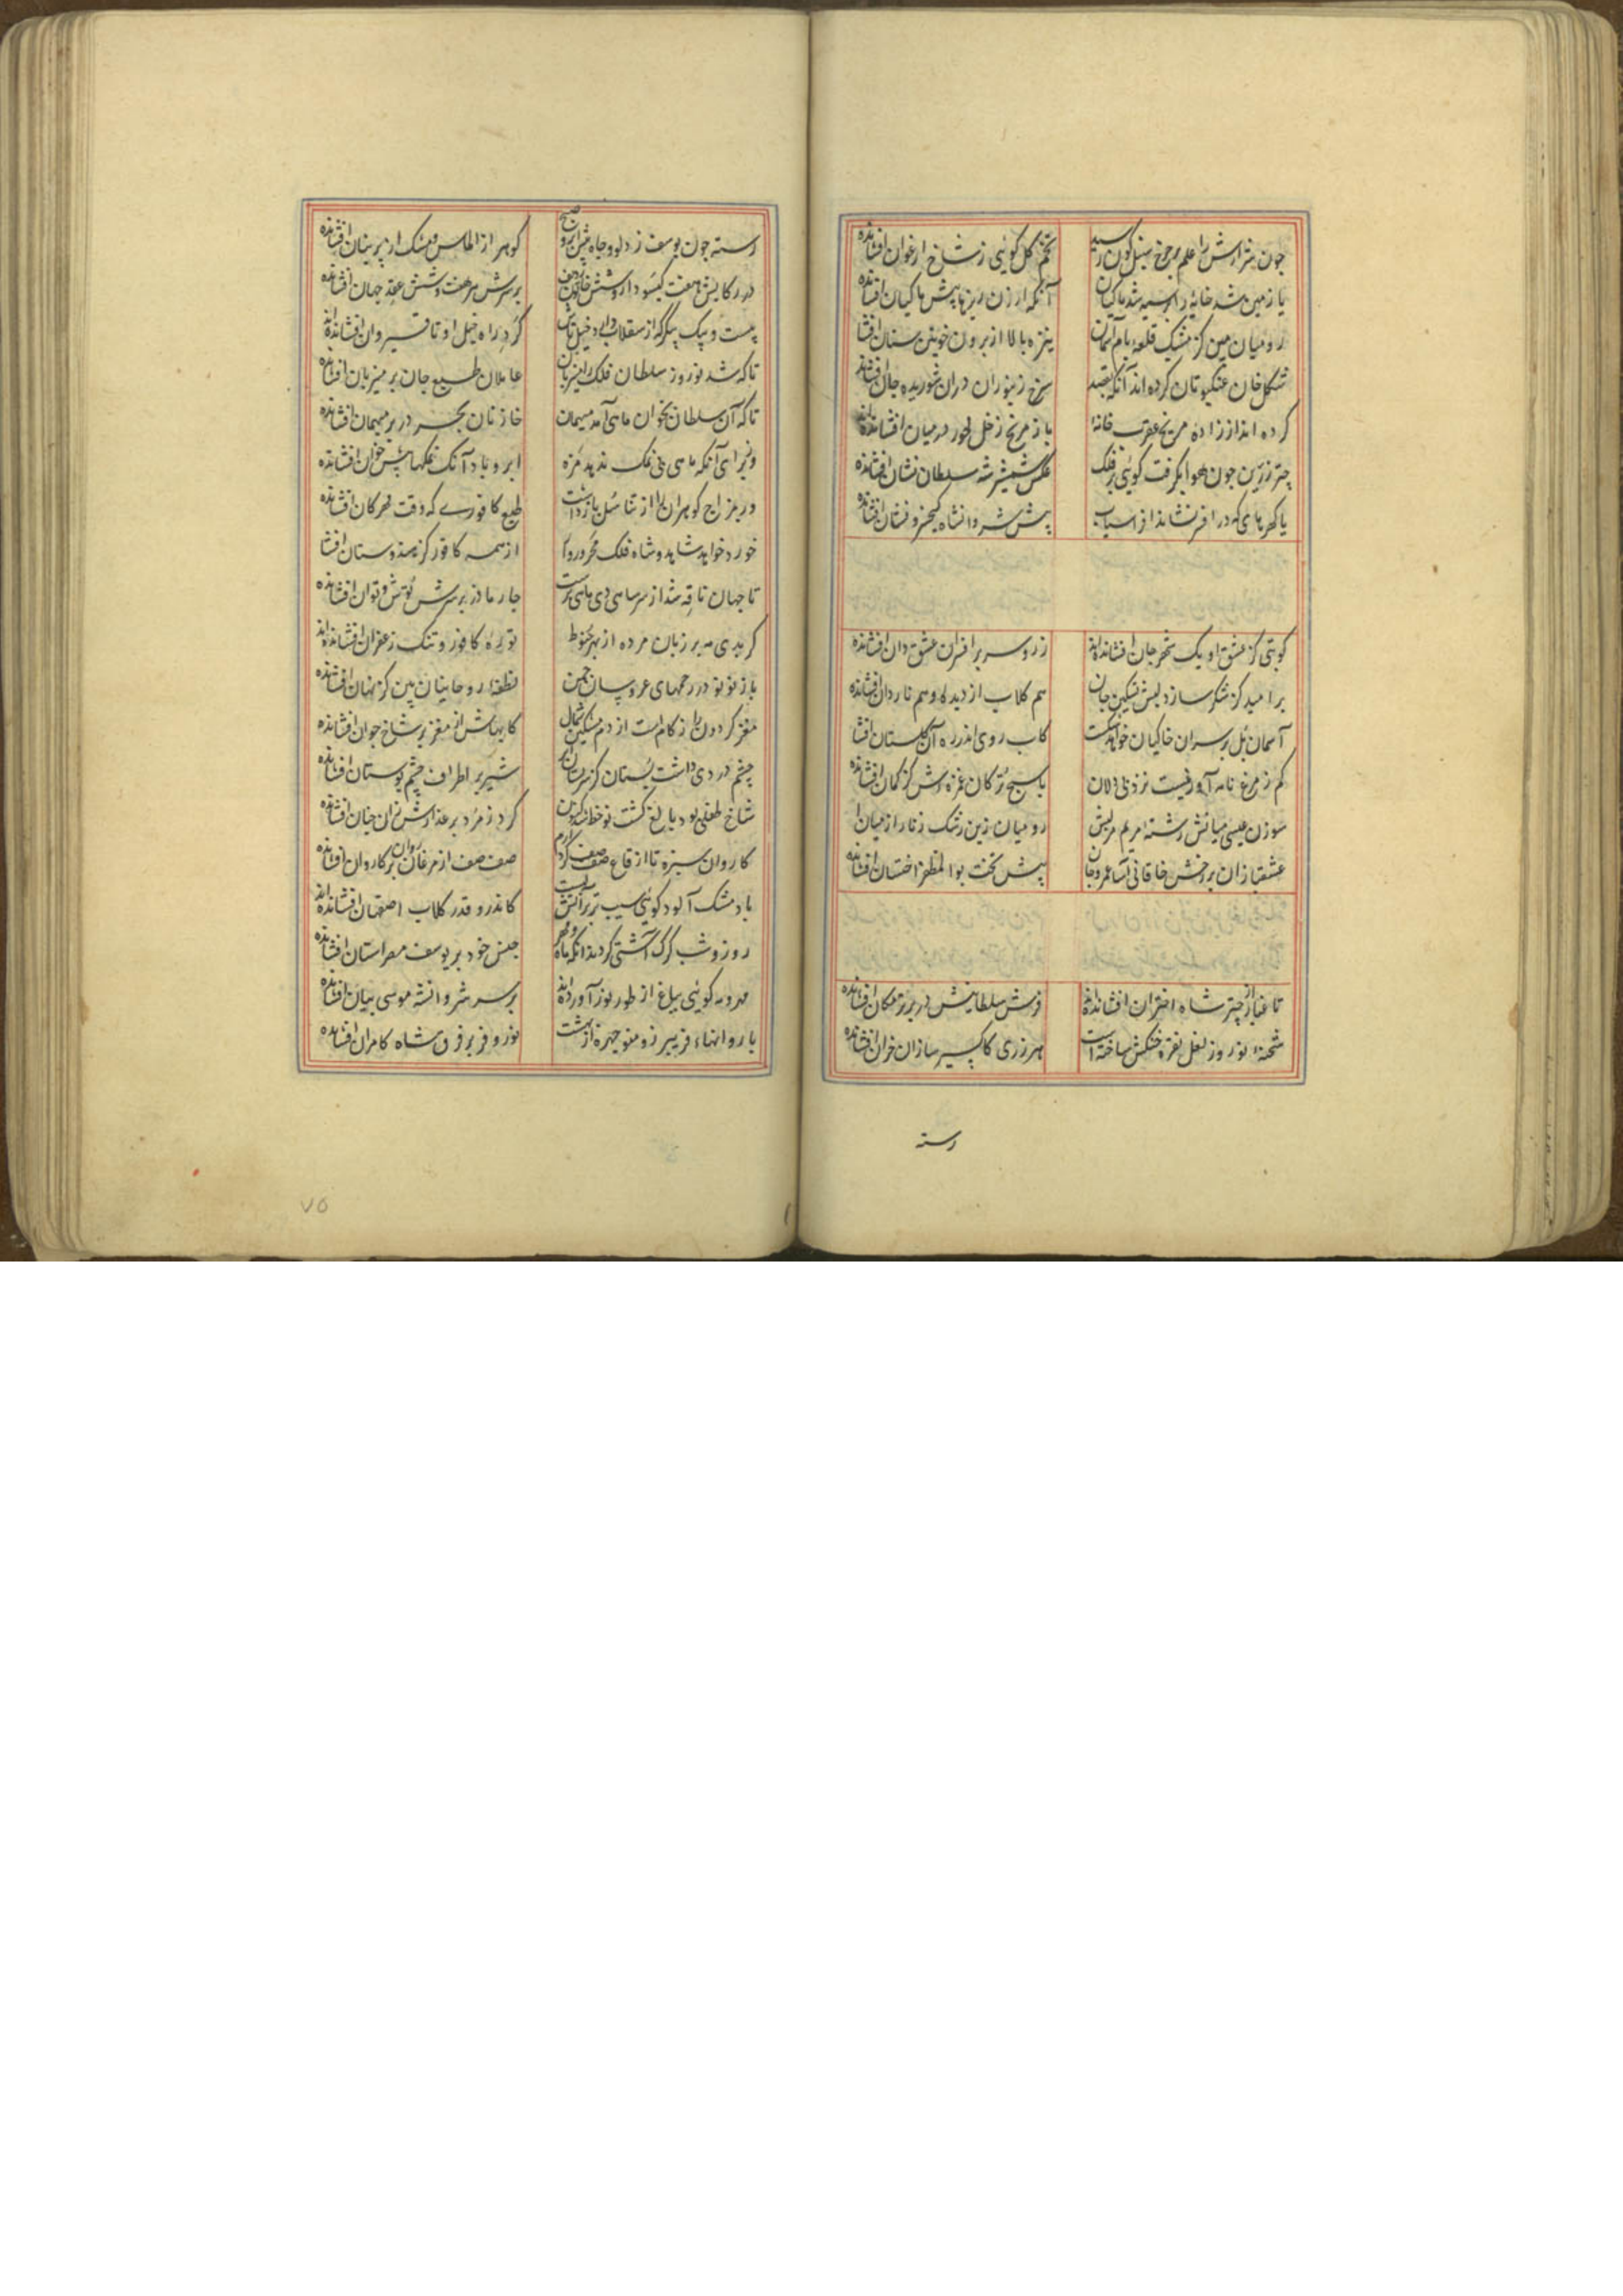 چون شرارش را علم بر چرخ نیل‌گون رسید تخم گل گویی ز شاخ ارغوان افشانده‌اند
یا زمین شد خایه و ابر سیه شد ماکیان آنکه ارزن ریزها پیش ماکیان افشانده
رومیان بین کز مشبک قلعه بام آسمان نیزه بالا از برون خونین سنان افشا
شکل خان عنکبوتان کرده‌اند آنگه بقصد سرخ زنبوران در آن شوریده جان افشانده
کرده‌اند از زاده مریخ عقرب خانه باز مریخ زحل خور در میان افشانده‌اند
چتر زرین چون هوا بگرفت گویی بر فلک عکس شمشیر شه سلطان نشان افشانده
پیش شروانشاه کیخسرو نشان افشانده
کو بتی کز عشق او یک شهر جان افشانده‌اند زر و سر بر افسران عشق دان افشانده
بر امید کز شکر سازد لبش تسکین جان هم گلاب از دیده و هم ناردان افشانده
آسمان پل بر سران خاکیان خواهد شکست کاب روی اندر ره آن دلستان افشا
کم ز مرغ نامه آور نیست نزد بی دلان یاسج ترکان غمزه‌ش کز کمان افشانده
سوزن عیسی میانش رشته مریم مریش رومیان زین رشک زنار از میان ا
عشقبازان بر رخش خاقانی آسا عمر و جان پیش تخت بوالمظفر اخستان افشانده
تا غبار از چتر شاه اختران افشانده‌اند فرش سلطانیش در برترمکان افشانده
شحنه نوروز نعل نقره خنگش ساخته است هر زری کاکسیر سازان خزان افشانده
رسته
رسته چون یوسف ز دلو و چاه پیش ابر و صبح گوهر از الماس و مشک از پرنیان افشانده
در رکابش هفت گیسودار و شش خاتون ردیف بر سرش هر هفت و شش عقد جهان افشانده
بیست و یک پیکر که از سقلاب دارد خیل تاش گرد راه خیل او تا قیروان افشانده‌اند
تا که شد نوروز سلطان فلک را میزبان عاملان طبع جان بر میزبان افشانده
تا که آن سلطان بخوان ماهی آمد میهمان خازنان بحر در بر میهمان افشانده
وز برای آنکه ماهی بی نمک ندهد مزه ابر و باد آنک نمکها پیش خوان افشانده
ور مزاج گوهران را از تناسل باز داشت طبع کافوری که وقت مهرگان افشانده
خورد خواهد شاهد و شاه فلک محرورو از همه کافور کز هندوستان افشا
تا جهان ناقه شد از سرسام دی ماهی برست چار مادر بر سرش توش و توان افشانده
گر بدی مه بر زبان مرده از بهر حنوط توده کافور و تنگ زعفران افشانده‌اند
باز نو نو در رحمهای عروسان چمن نطفه روحانیان بین کز نهان افشانده
مغز گردون را زکام است از دم مشکین شمال کابهاش از مغز بر شاخ جوان افشانده
چشم درد داشت بستان کز سر پستان ابر شیر بر اطراف چشم بوستان افشانده
شاخ طفلی بود بالغ گشت نو خط کنون گرد زمرد بر عذارش زان چنان افشانده
کاروان سبزه تا از قاع صفصف کرد ارم صف صف از مرغان روان بر کاروان افشانده
باد مشک آلود گویی سیب تر بر آتش است کاندرو قدر گلاب اصفهان افشانده‌اند
روز و شب گرگ آشتی کردند آنک ماه و مهر جنس خود بر یوسف مصر استان افشانده
مهر و مه گویی بباغ از طور نور آورده‌اند بر سر شروانشه موسی بیان افشانده
یا روانهاء فریبرز و منوچهر از بهشت نور و فر بر فرق شاه کامران افشانده
۷۵